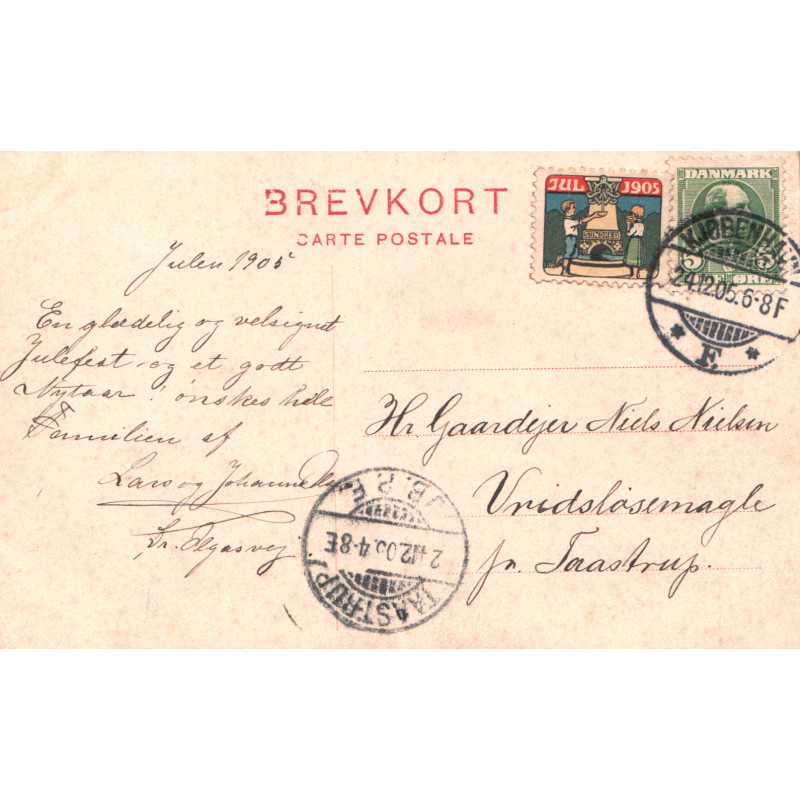 BREVKORT
CARTE POSTALE
JUL 1905
SUNDHED
DANMARK
5 5
KJØBENHAVN
24.12.05.6-8F
F.
Julen 1905
En glædelig og velsignet
Julefest og et godt
Nytaar! ønskes hele
Familien af
Lars og Johanne
Dr. Olgasvej
Hr. Gaardejer Niels Nielsen
Vridsløsemagle
pr. Taastrup.
TAASTRUP
24.12.05.4-8E
JB. P. E.